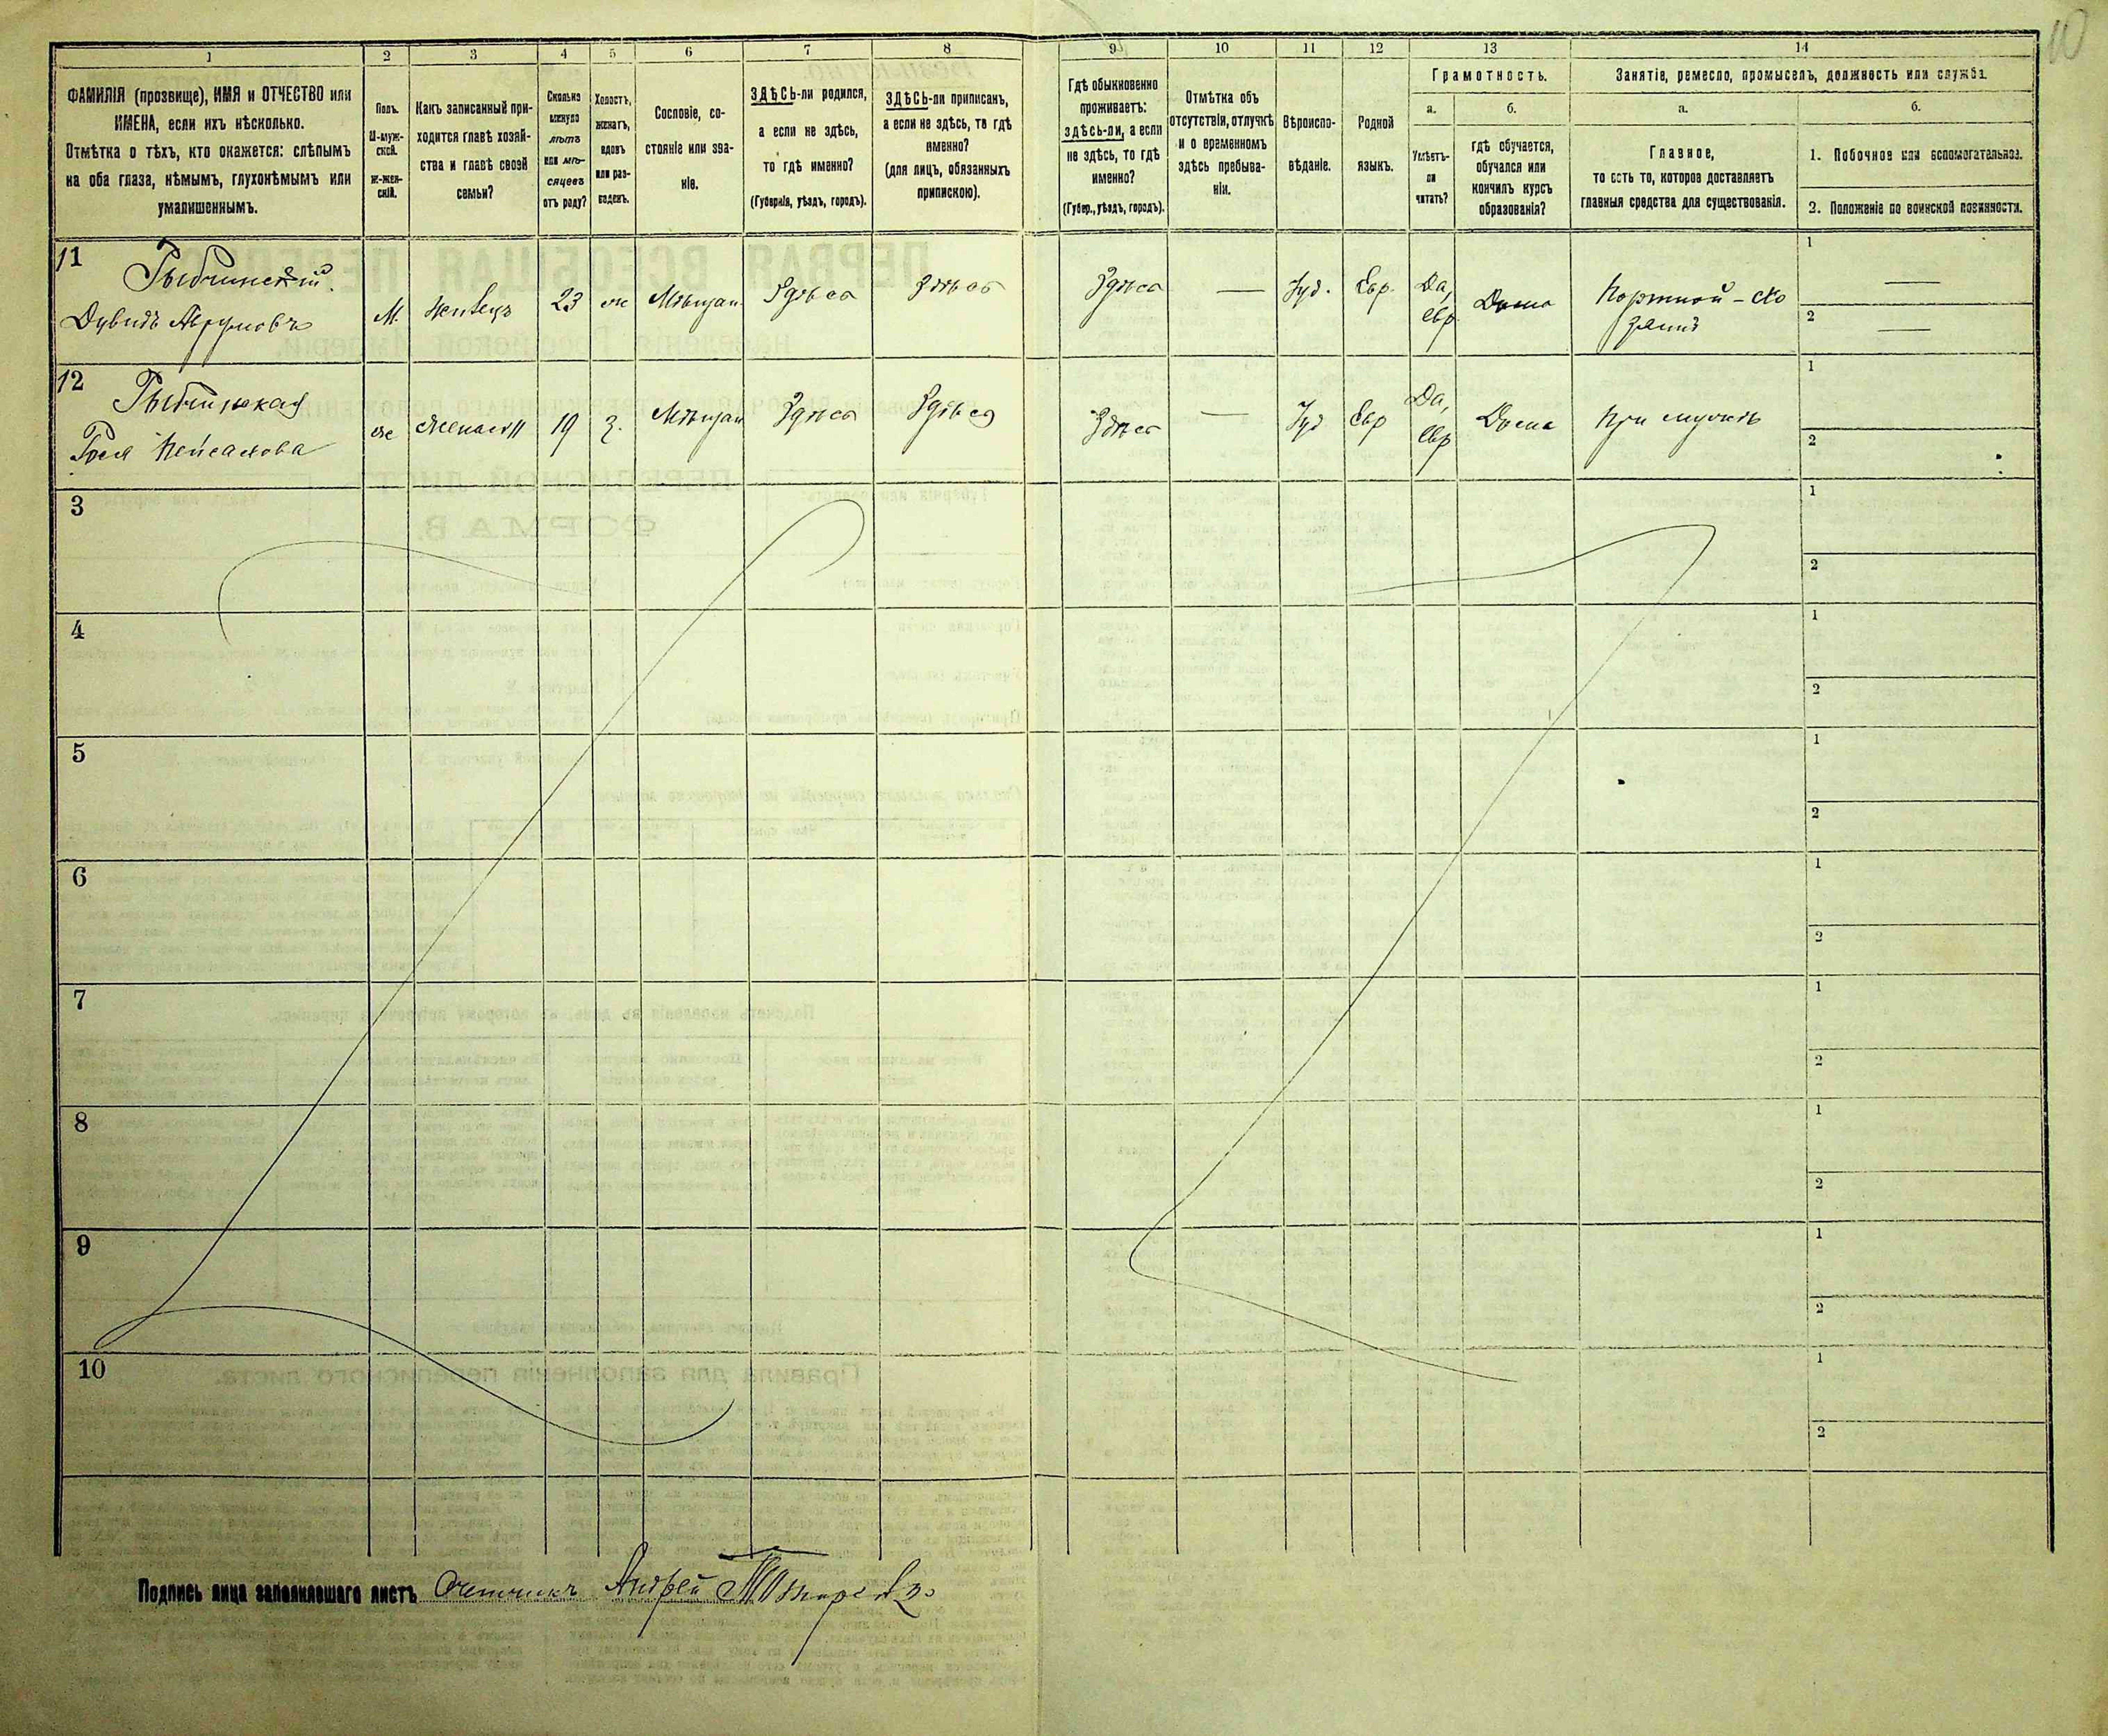 10
1
2
3
4
5
6
7
8
9
10
11
12
13
14
ФАМИЛІЯ (прозвище), ИМЯ и ОТЧЕСТВО или
ИМЕНА, если ихъ нѣсколько.
Отмѣтка о тѣхъ, кто окажется: слѣпымъ
на оба глаза, нѣмымъ, глухонѣмымъ или
умалишеннымъ.
Полъ.
М-муж-
ской.
ж-жен-
скій.
Какъ записанный при-
ходится главѣ хозяй-
ства и главѣ своей
семьи?
Сколько
минуло
лѣтъ
или мѣ-
сяцевъ
отъ роду?
Холостъ,
женатъ,
вдовъ
или раз-
веденъ.
Сословіе, со-
стояніе или зва-
ніе.
ЗДѢСЬ-ли родился,
а если не здѣсь,
то гдѣ именно?
(Губернія, уѣздъ, городъ).
ЗДѢСЬ-ли приписанъ,
а если не здѣсь, то гдѣ
именно?
(для лицъ, обязанныхъ
припискою).
Гдѣ обыкновенно
проживаетъ:
здѣсь-ли, а если
не здѣсь, то гдѣ
именно?
(Губер., уѣздъ, городъ).
Отмѣтка объ
отсутствіи, отлучкѣ
и о временномъ
здѣсь пребыва-
ніи.
Вѣроиспо-
вѣданіе.
Родной
языкъ.
Грамотность.
а.
б.
Умѣетъ-
ли
читать?
гдѣ обучается,
обучался или
кончилъ курсъ
образованія?
Занятіе, ремесло, промыселъ, должность или служба.
а.
б.
Главное,
то есть то, которое доставляетъ
главныя средства для существованія.
1. Побочное или вспомогательное.
2. Положеніе по воинской повинности.
11
Дувидъ Аврумовъ
М.
23
ж
Мѣщан
Здѣсь
Здѣсь
Здѣсь
—
Іуд.
Евр.
Да,
евр
Дома
Портной - хо
зяинъ
1
—
2
—
12
же
жена 11
19
з.
Мѣщан
Здѣсь
Здѣсь
Здѣсь
—
Іуд
Евр
Да,
Евр
Дома
При мужѣ
1
2
3
1
2
4
1
2
5
1
2
6
1
2
7
1
2
8
1
2
9
1
2
10
1
2
Подпись лица заполнявшаго листъ Счетчикъ Андрей